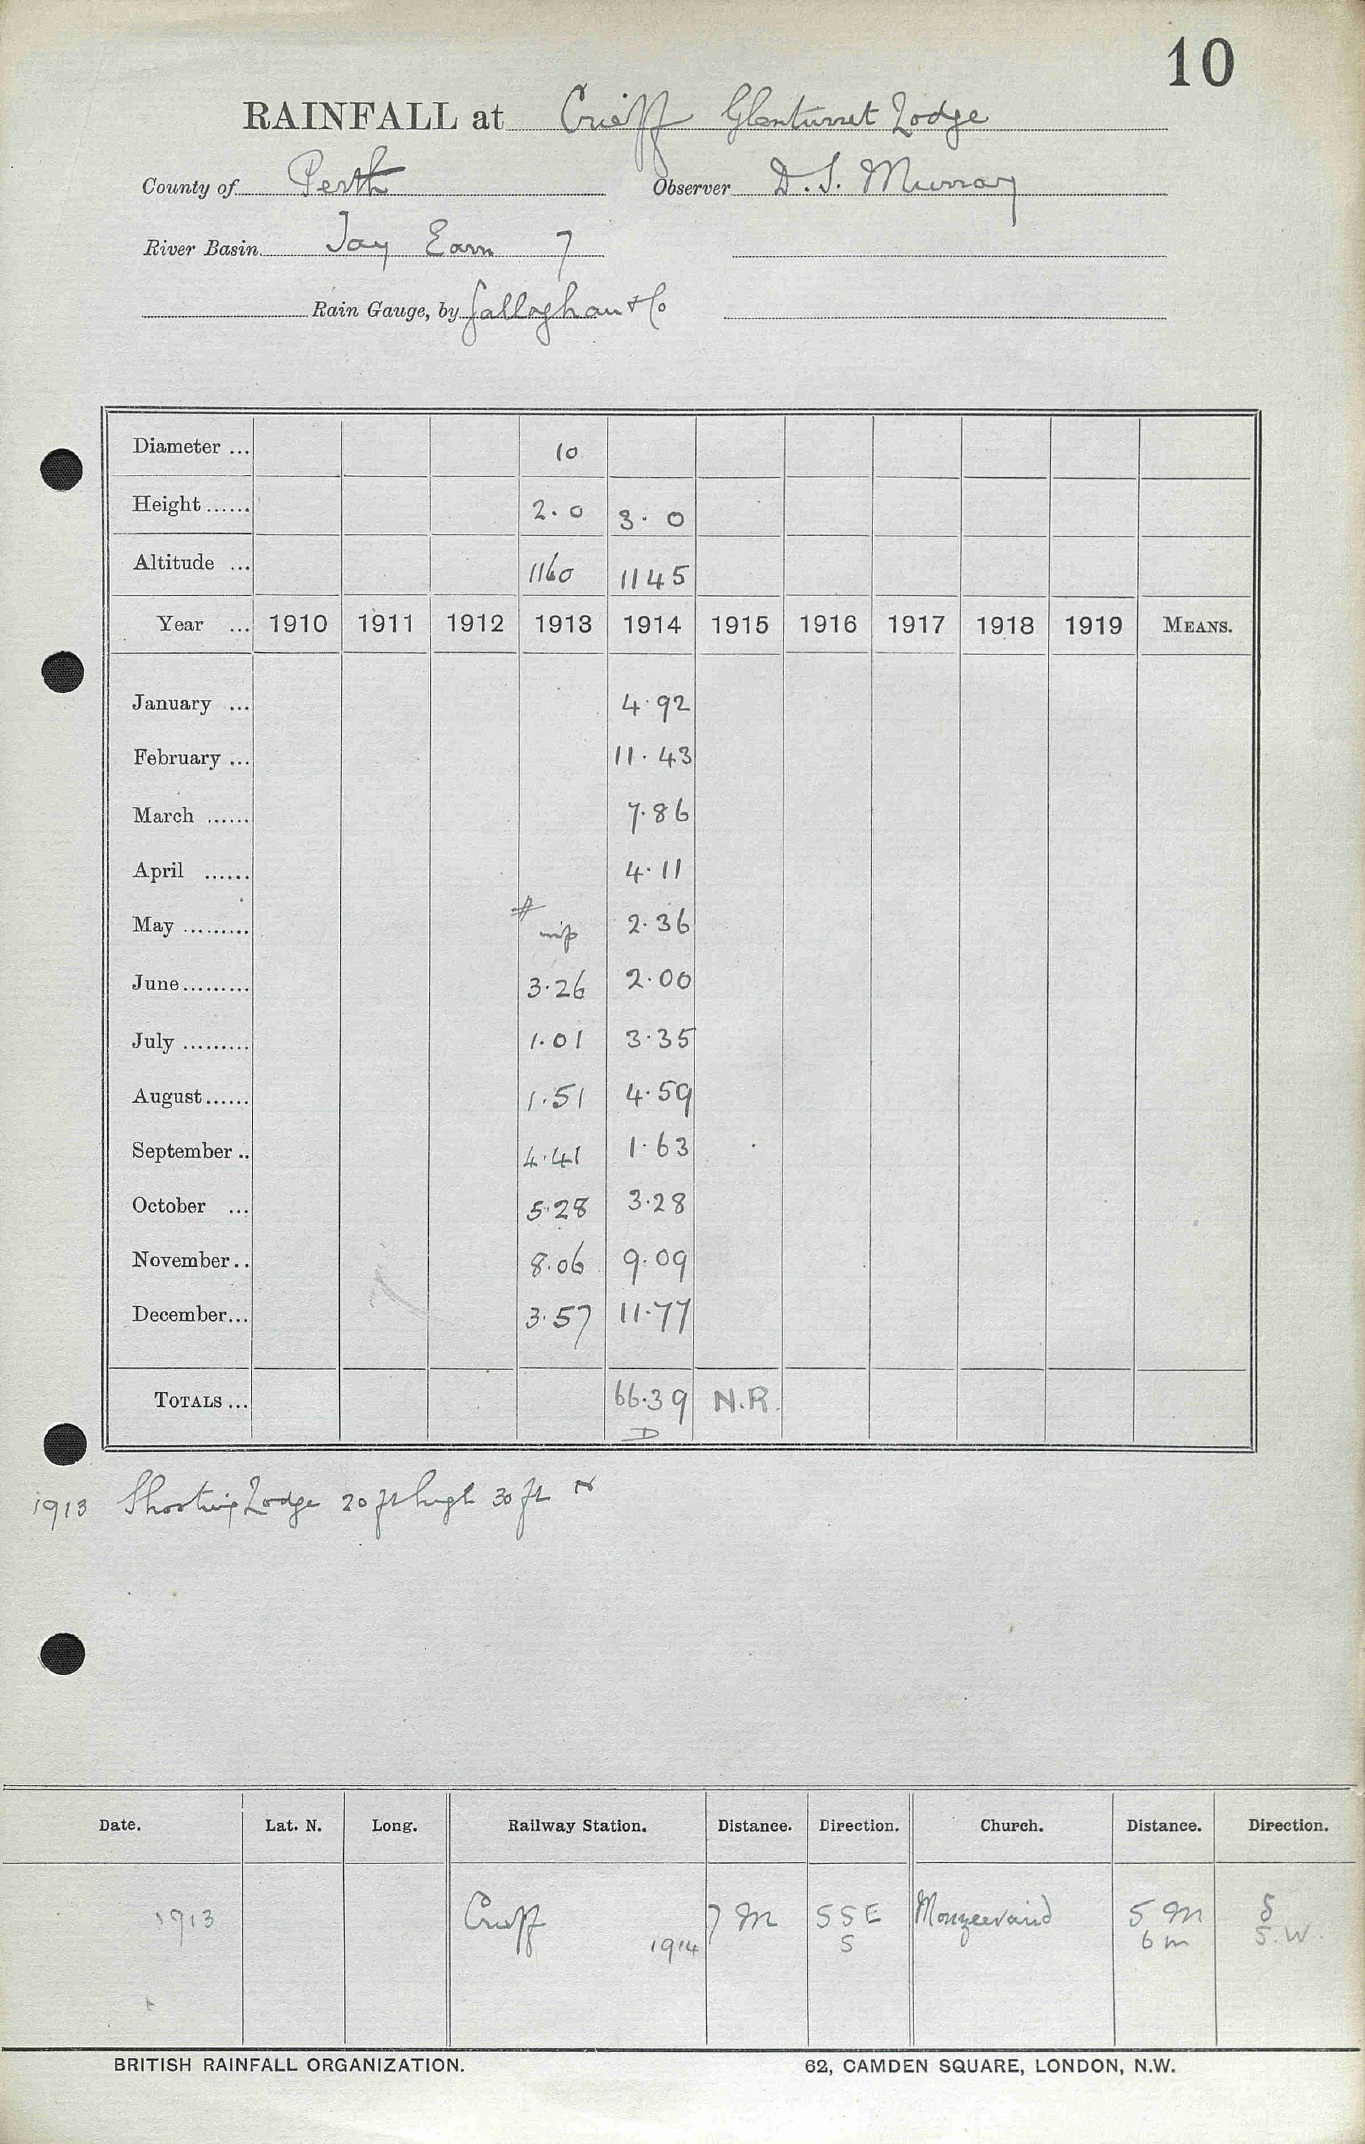 10
RAINFALL at Crieff Glenturret Lodge
County of Perth Observer D. S. Murray
River Basin Tay Earn 7
Rain Gauge, by Gallaghan & Co
Diameter ... 10
Height ...... 2.0 3.0
Altitude ... 1160 1145
Year ... 1910 1911 1912 1913 1914 1915 1916 1917 1918 1919 MEANS.
January ... 4.92
February ... 11.43
March ...... 7.86
April ...... 4.11
May ......... 2.36
June ......... 3.26 2.00
July ......... 1.01 3.35
August ...... 1.51 4.59
September .. 4.41 1.63
October ... 5.28 3.28
November .. 8.06 9.09
December ... 3.57 11.77
TOTALS ... 66.39 N.R.
D
1913 Shooting Lodge 20 ft high 30 ft N
Date. Lat. N. Long. Railway Station. Distance. Direction. Church. Distance. Direction.
1913 Crieff 7 M SSE Monzievaird 5 M S
1914 S 6 m S.W.
BRITISH RAINFALL ORGANIZATION. 62, CAMDEN SQUARE, LONDON, N.W.